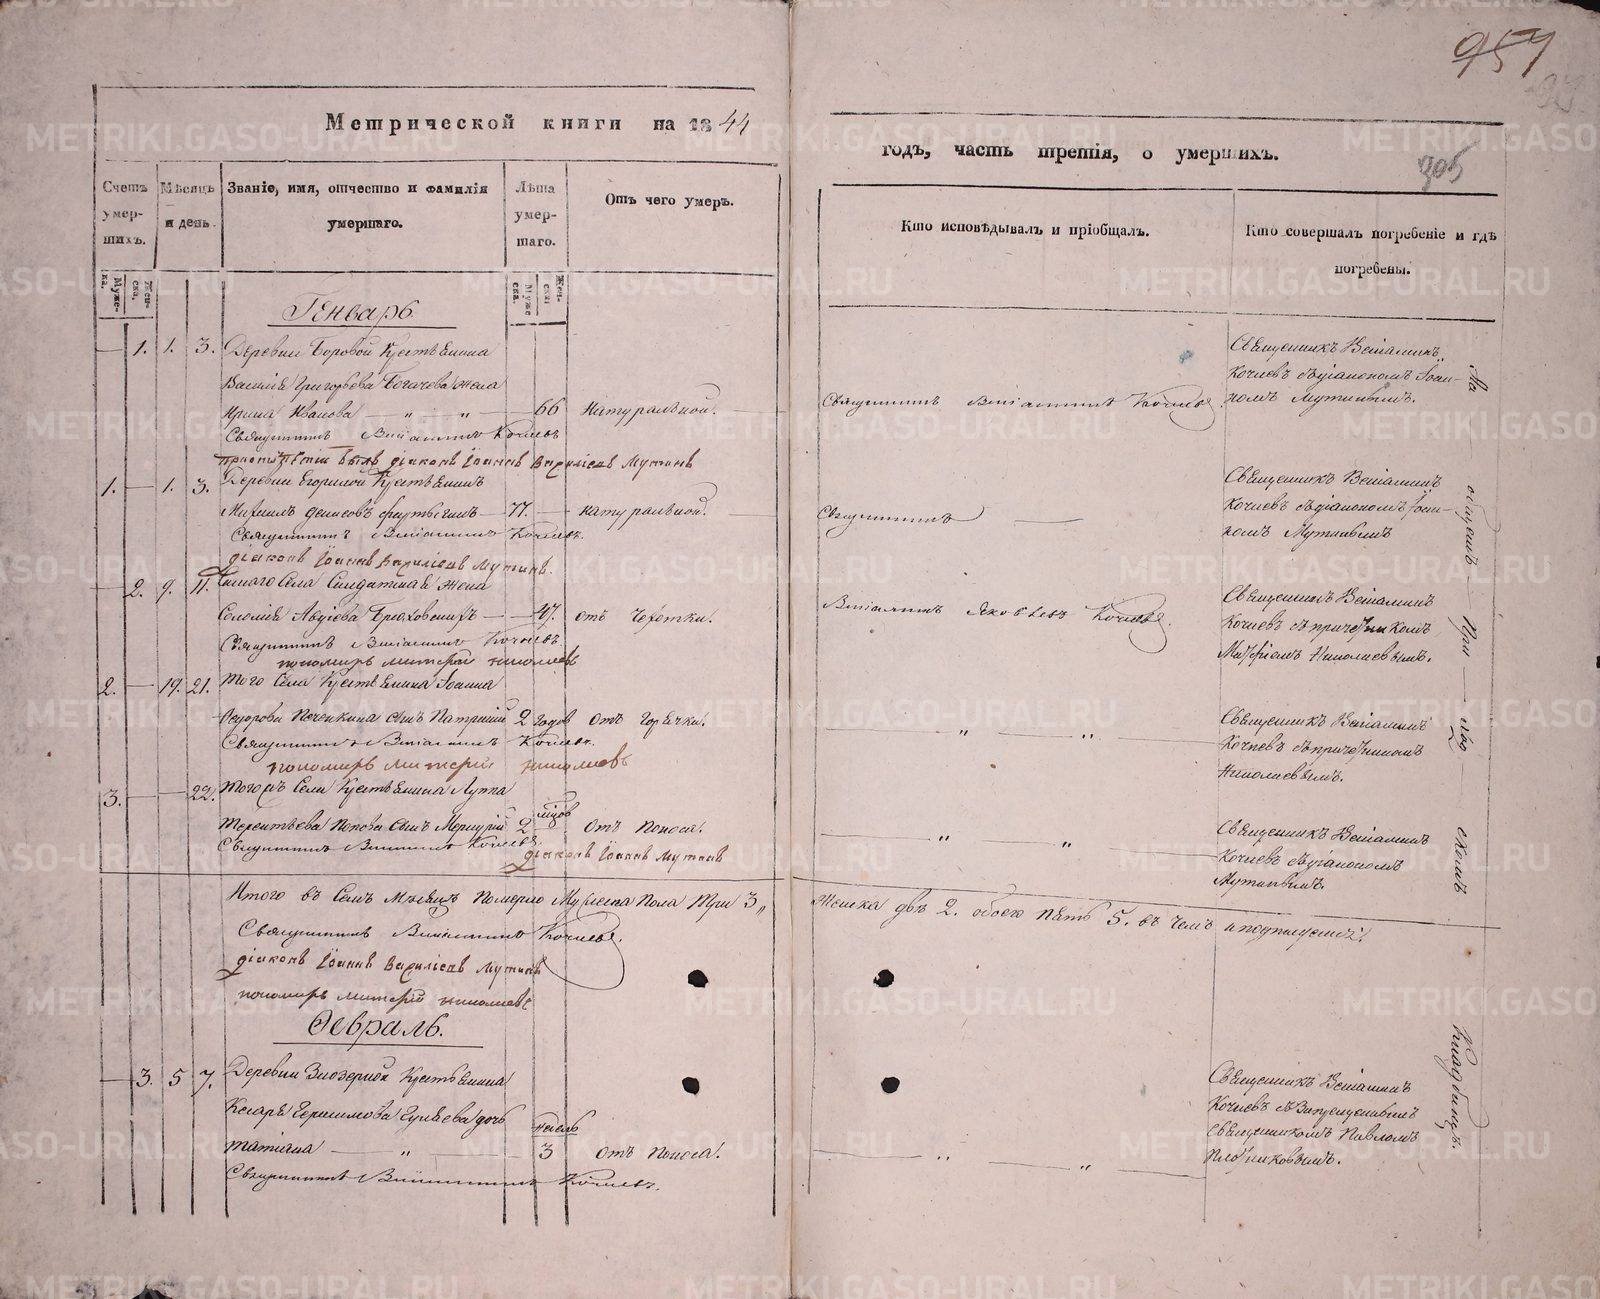 957
93
305
Метрической книги на 1844
годъ, часть третія, о умершихъ.
Счетъ умер-шихъ.
Мѣсяцъ и день.
Званіе, имя, отчество и фамилія умершаго.
Лѣта умер-шаго.
Отъ чего умеръ.
Кто исповѣдывалъ и пріобщалъ.
Кто совершалъ погребеніе и гдѣ погребены.
Муже-ска.
Жен-ска.
Муже ска.
Жен-ска.
Генварь.
1. 1. 3. Деревни Боровой Крестьянина
Василія Григорьева Богачева жена
Ирина Иванова 66 натуральной.
Священникъ Веніаминъ Кочневъ
діаконъ Іоаннъ Василіевъ Мутинъ
Священникъ Веніаминъ Кочневъ.
Священникъ Веніаминъ
Кочневъ съ діакономъ Іоан-
номъ Мутинымъ.
1. 1. 3. Деревни Крестьянинъ
Михаилъ Денисовъ 77. натуральной.
Священникъ Веніаминъ Кочневъ.
діаконъ Іоаннъ Василіевъ Мутинъ.
Священникъ
Священникъ Веніаминъ
Кочневъ съ діакономъ Іоан-
номъ Мутинымъ
2. 9. 11. Села Солдатская жена
Соломія Авдіева 47. отъ Чехотки.
Священникъ Веніаминъ Кочневъ.
пономарь Николаевъ
Веніаминъ Яковлевъ Кочневъ.
Священникъ Веніаминъ
Кочневъ съ причетникомъ
Николаевымъ.
2. 19. 21. Того Села Крестьянина Іоанна
Печенкина сынъ 2 годов отъ Горячки.
Священникъ Веніаминъ Кочневъ.
пономарь Николаевъ
Священникъ Веніаминъ
Кочневъ съ причетникомъ
Николаевымъ.
3. 22. Тогожъ Села Крестьянина Луппа
Терентьева Попова сынъ Меркурій 2 отъ Поноса.
Священникъ Веніаминъ Кочневъ.
діаконъ Іоаннъ Мутинъ
Священникъ Веніаминъ
Кочневъ съ діакономъ
Мутинымъ.
Итого въ Семъ Мѣсяцѣ Померло Мужеска Пола Три 3,, Женска двѣ 2. обоего Пять 5. въ чемъ и подпишемся.
Священникъ Веніаминъ Кочневъ.
діаконъ Іоаннъ Василіевъ Мутинъ
пономарь Николаевъ
Февраль.
3. 5 7. Деревни Заозерной Крестьянина
дочь
Татіана Недель 3 отъ Поноса.
Священникъ Веніаминъ Кочневъ.
Священникъ Веніаминъ
Кочневъ съ
Священникомъ Павломъ
Плотниковымъ.
На общемъ При Кладбищѣ.
METRIKI.GASO-URAL.RU